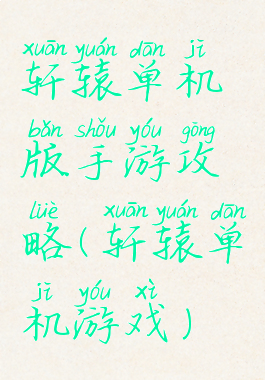 xuān yuán dān jī
轩辕单机
bǎn shǒu yóu gōng
版手游攻
lüè xuān yuán dān
略(轩辕单
jī yóu xì
机游戏)